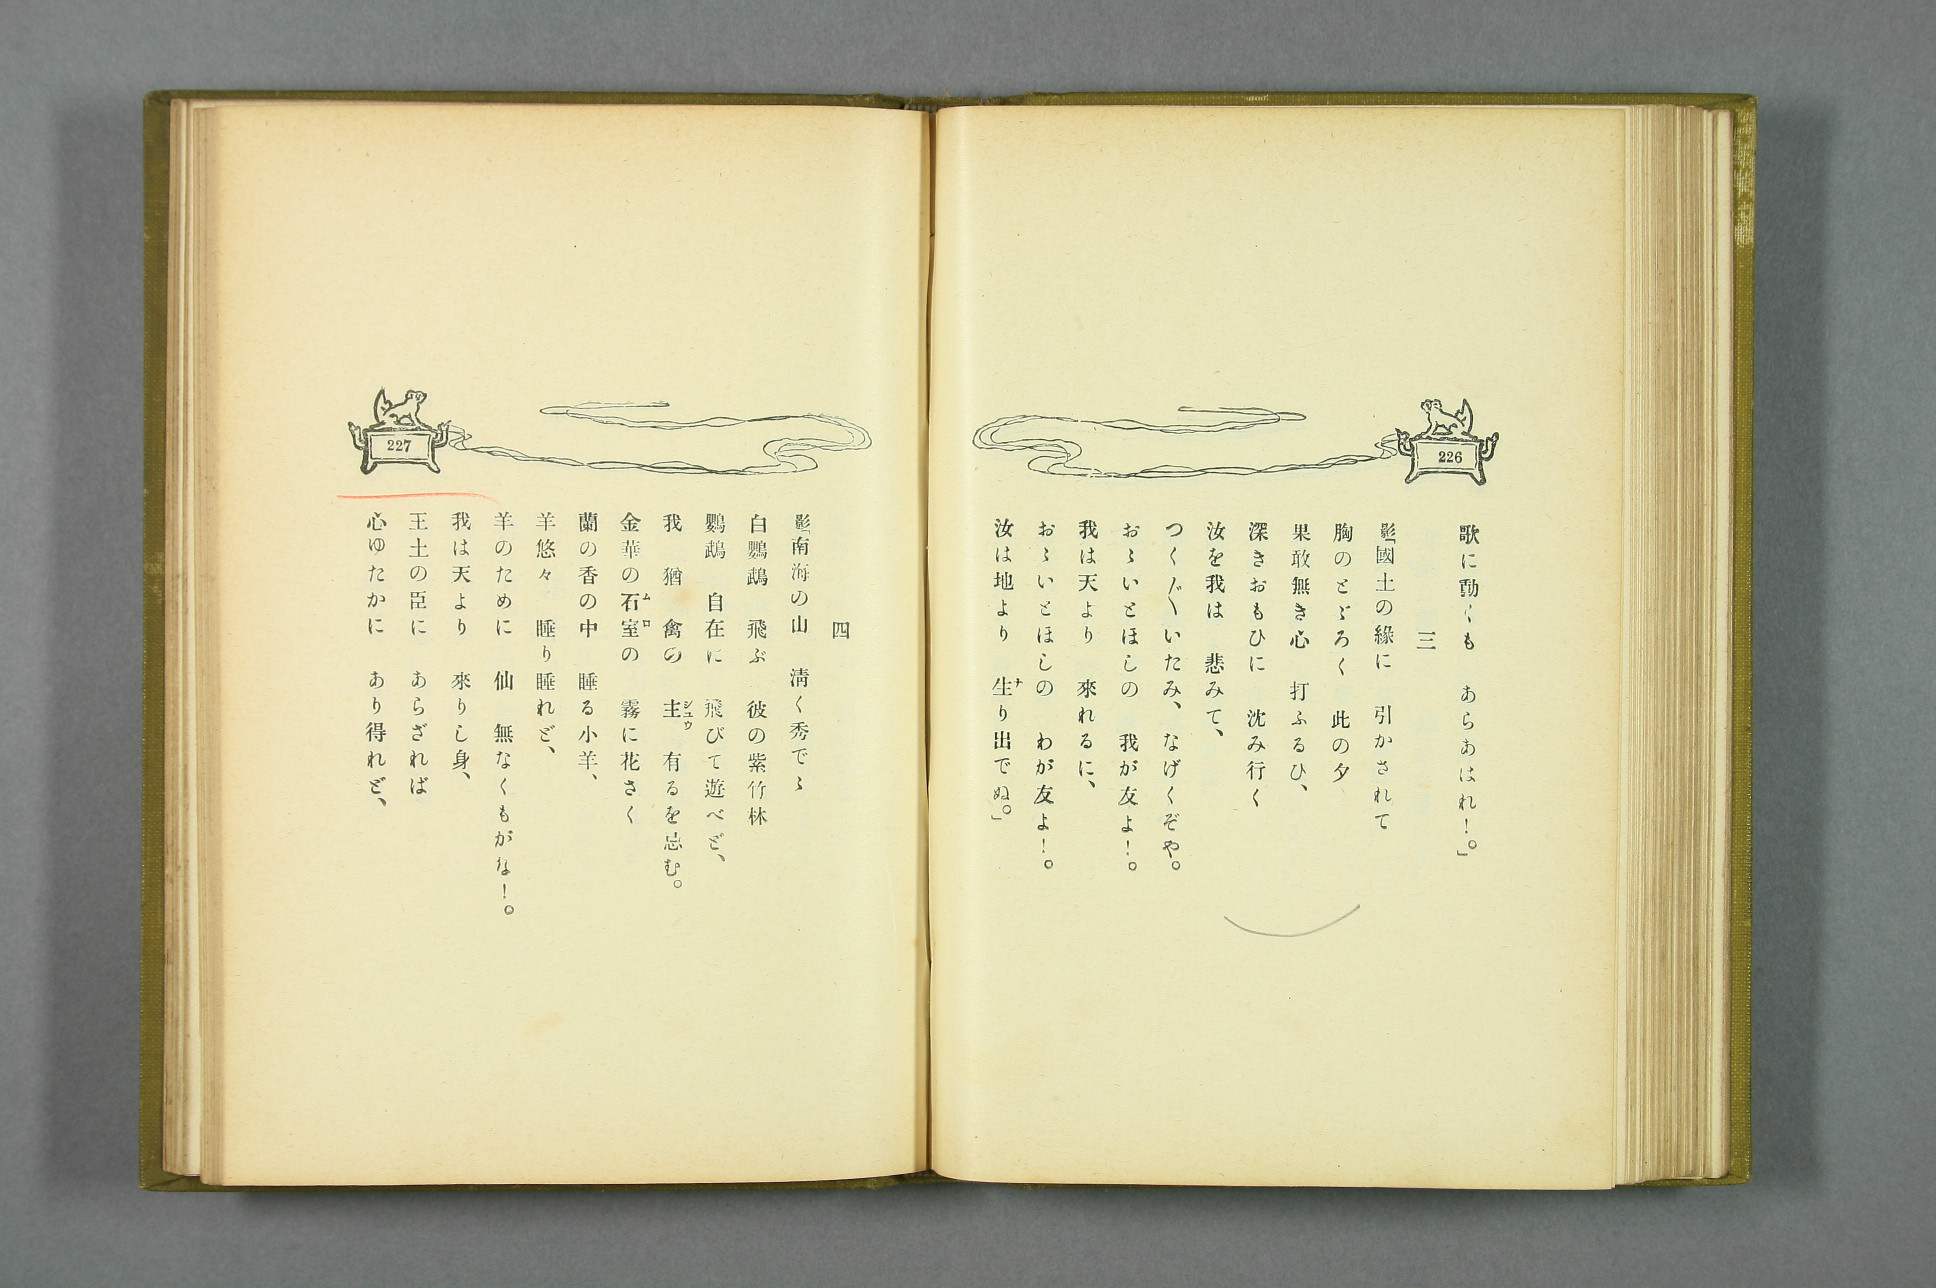 226
歌に動くも　あらあはれ！。」
三
影「國土の緣に　引かされて
胸のとゞろく　此の夕
果敢無き心　打ふるひ、
深きおもひに　沈み行く
汝を我は　悲みて、
つく〲いたみ、なげくぞや。
おゝいとほしの　我が友よ！。
我は天より　來れるに、
おゝいとほしの　わが友よ！。
汝は地より　生ナり出でぬ。」
227
四
影「南海の山　淸く秀でゝ
白鸚鵡　飛ぶ　彼の紫竹林
鸚鵡　自在に　飛びて遊べど、
我　猶　禽の　主シュウ　有るを忘む。
金華の石室ムロの　霧に花さく
蘭の香の中　睡る小羊、
羊悠々　睡り睡れど、
羊のために　仙　無なくもがな！。
我は天より　來りし身、
王土の臣に　あらざれば
心ゆたかに　あり得れど、